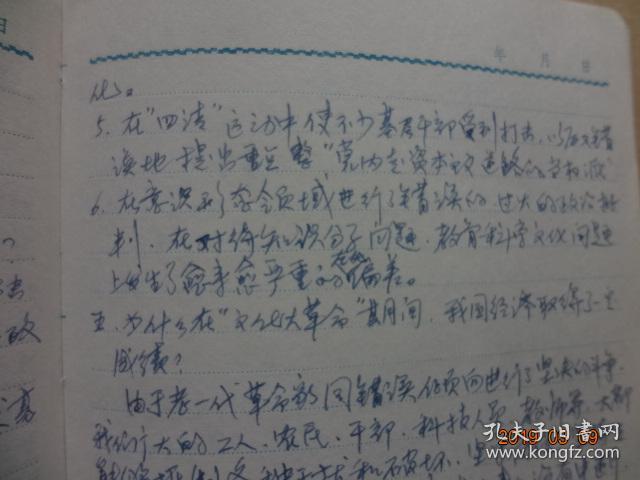 日
年 月 日
化。
5. 在"四清"运动中使不少基层干部受到打击，以后又错
误地提出重点整"党内走资本主义道路的当权派"
6. 在意识形态领域也进行了错误的、过火的政治批
判，在对待知识分子问题、教育科学文化问题
上发生了愈来愈严重的左的偏差。
五. 为什么在"文化大革命"期间，我国经济取得了一定
成绩？
由于老一代革命家同错误倾向进行了坚决的斗争
我们广大的工人、农民、干部、科技人员、教师等，大部
能
和破坏，坚
政
2019 05 09
孔夫子旧书网
www.kongfz.com